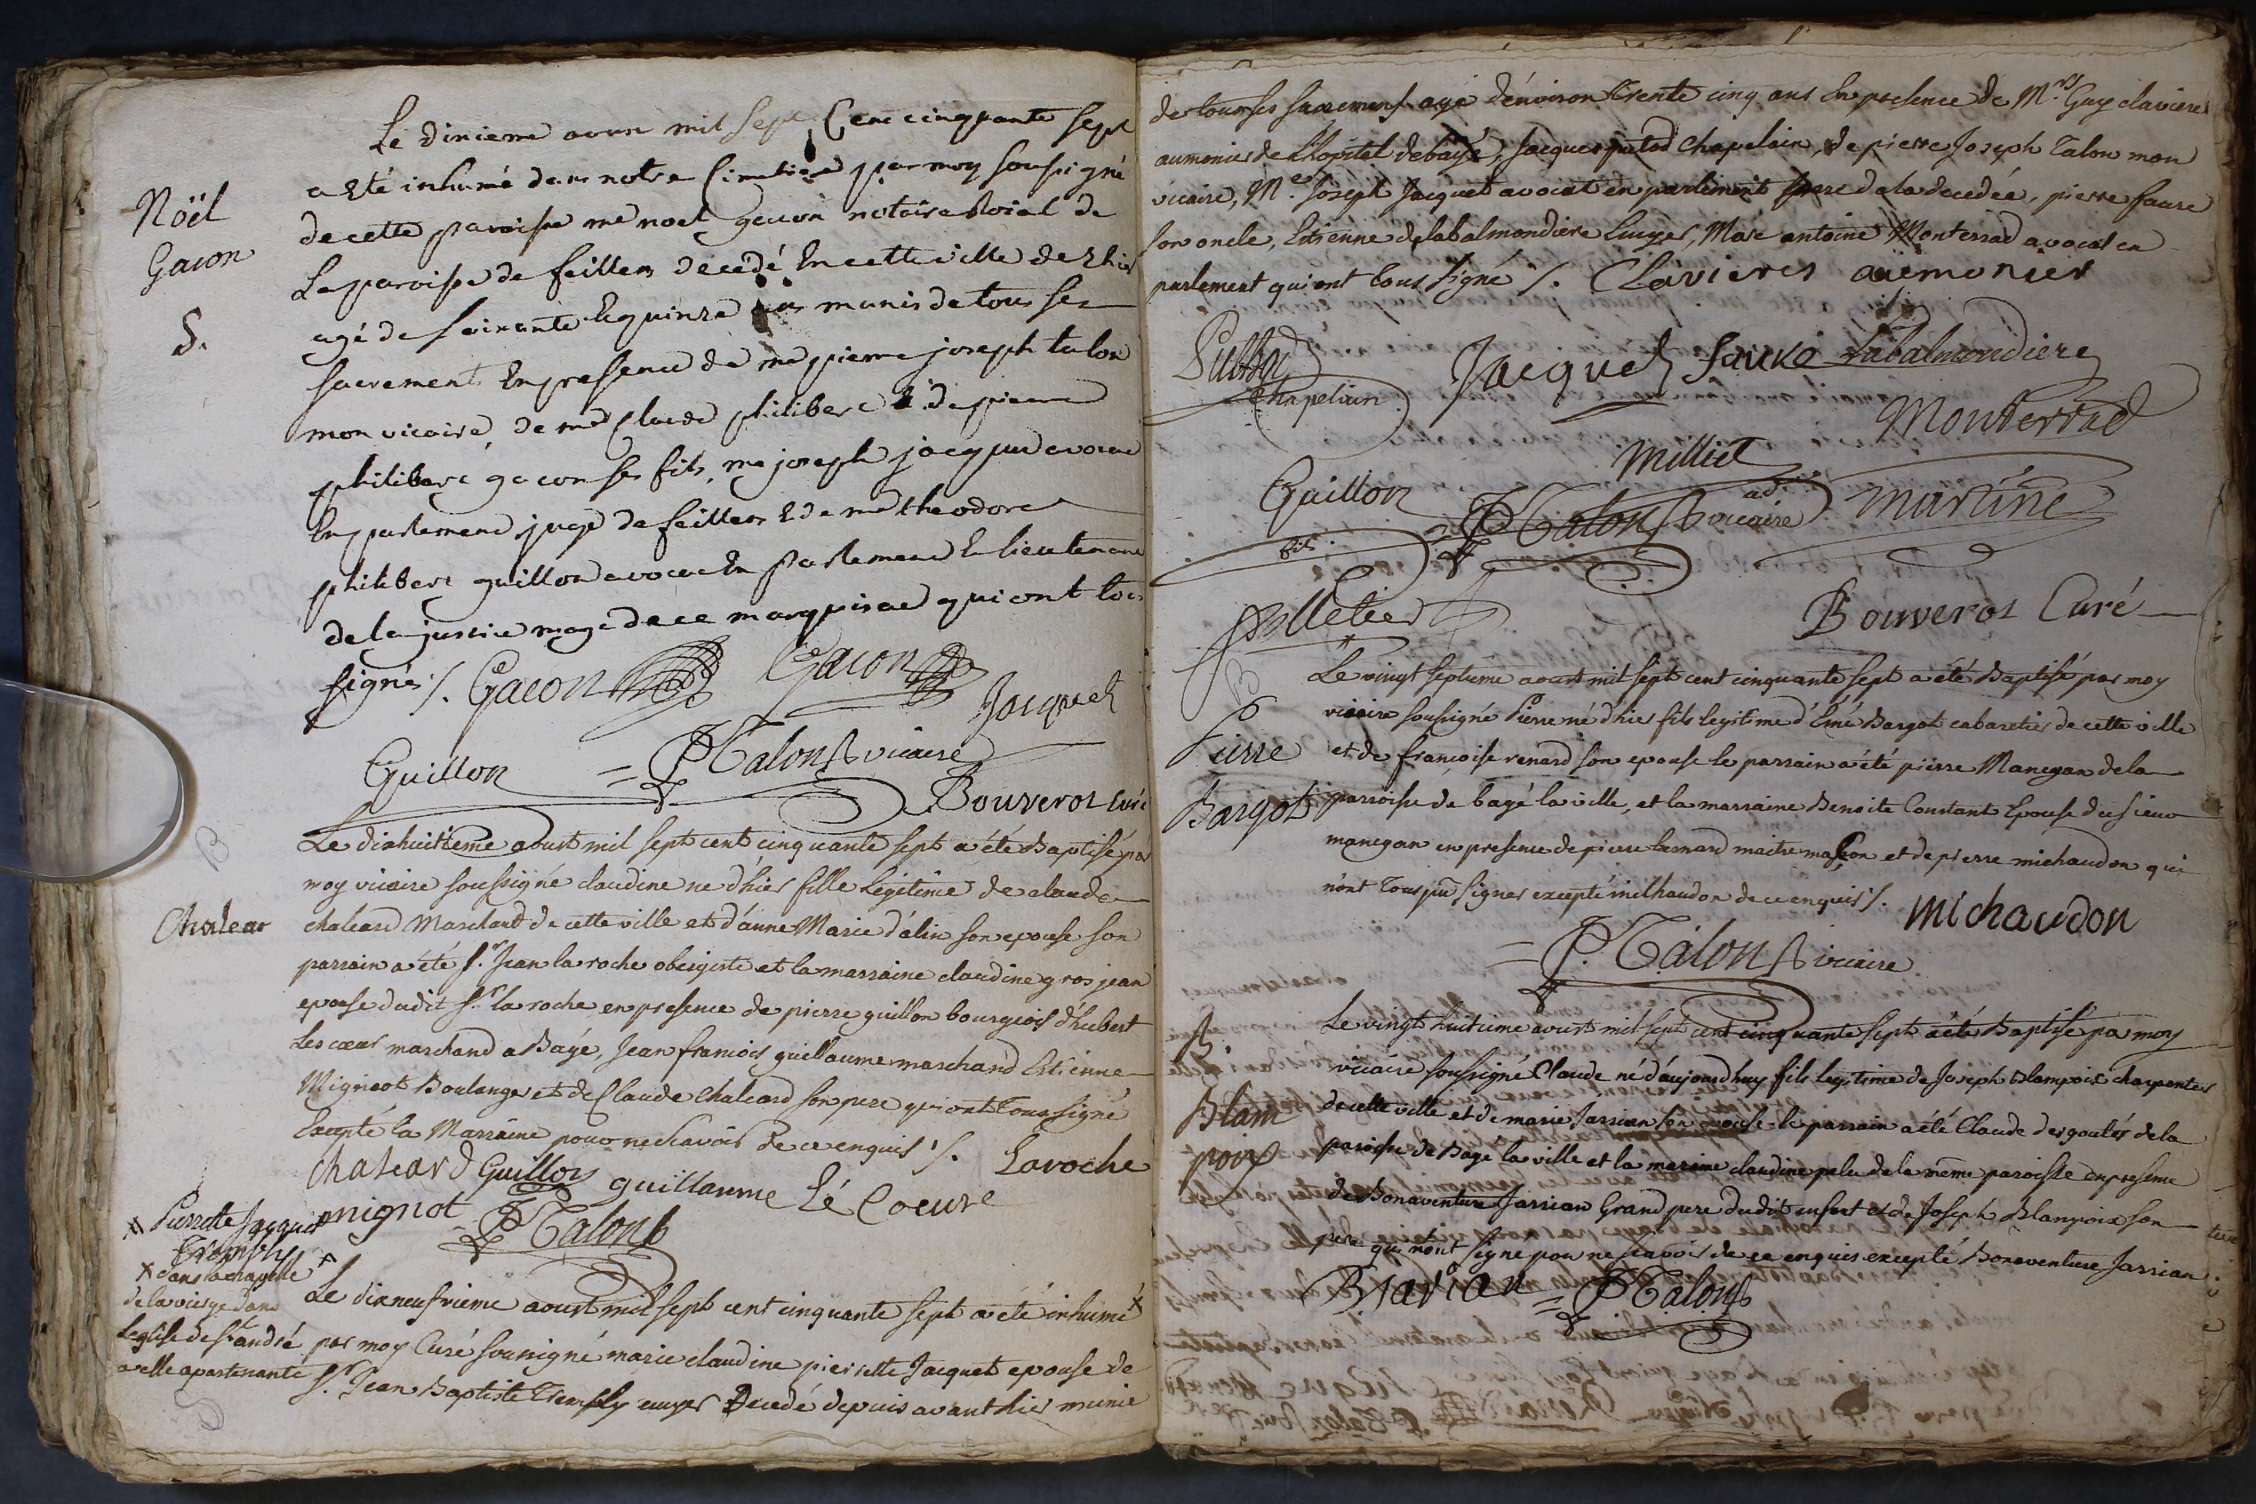 Noël
Gacon
S.
Le dixieme aoust mil sept Cent cinquante sept
a eté inhumé dans notre Cimetiere par moy soussigné
de cette paroisse me noel gacon notaire Roial de
La paroisse de feillens decedé En cette ville
agé de soixante & quinze ans munis de tous ses
sacrements En presence de me pierre joseph talon
mon vicaire, de me Claude philibert & de pierre
philibert gacon ses fils, me joseph jacquet avocat
En parlement juge de feillens & de me theodore
philibert guillon avocat En parlement & lieutenant
de la justice mage de ce marquisat qui ont tous
signés /. Gacon Gacon Jacquet
Guillon = PJTalon vicaire
Bouverot Curé
B
Chalear
Le dixhuitieme aoust mil sept cent cinquante sept a été Baptisé par
moy vicaire soussigné claudine ne d'hier fille Legitime de claude
chaleard Marchand de cette ville et d'anne Marie d'alin son epouse son
parrain a été sr. Jean la roche et la marraine claudine gros jean
epouse dudit sr. la roche en presence de pierre guillon bourgeois d'hubert
Les coeur marchand a Bâgé, Jean francois guillaume marchand Estienne
Mignot Boulanger et de Claude Chaleard son pere qui ont tous signé
Excepté la Marraine pour ne scavoir de ce enquis /. Laroche
Chaleard Guillon guillaume Lé Coeure
mignot = PJTalon
Pierrette Jacquet
Trembly
x dans la chapelle
de la vierge dans
L'eglise de St. andré
a elle apartenante
S
Le dixneufvieme aoust mil sept cent cinquante sept a été inhumé x
par moy Curé soussigné marie claudine pierrette Jacquet epouse de
sr. Jean Baptiste Trembly ecuyer Decedé depuis avant hier munie
de tous ses sacremens agé d'environ trente cinq ans en presence de Mrs. Guy claviere
aumonier de L'hopital de bagé, Jacques putod chapelain, de pierre Joseph Talon mon
vicaire, Me. Joseph Jacquet avocat en parlement frere de la decedée, pierre faure
son oncle, Estienne de labalmondiere Ecuyer, Marc antoine Monterrad avocat en
parlement qui ont tous signé /. Clavieres aumonier
Putod
Chapelain
Jacquet faure Labalmondiere
Monterrad
Milliet
Guillon
fils
PJTalon vicaire
martine
Bouverot Curé
B
Pierre
Bargot
Le vingt septieme aoust mil sept cent cinquante sept a été Baptisé par moy
vicaire soussigné Pierre né d'hier fils legitime d'Emé Bargot cabaretier de cette ville
et de françoise renard son epouse le parrain a été pierre Manegan de la
parroisse de bagé la ville, et la marraine Benoite Constant Epouse du sieur
manegan en presence de pierre maitre maçon et de pierre michaudon qui
n'ont tous pu signer excepté michaudon de ce enquis /. michaudon
= PJTalon vicaire
B.
Blam
poix
Le vingt huitieme aoust mil sept cent cinquante sept a été Baptisé par moy
vicaire soussigné Claude né d'aujourdhuy fils legitime de Joseph Blampoix charpentier
de cette ville et de marie Jarrian son epouse le parrain a été Claude desgoutes de la
paroisse de Bagé la ville et la maraine claudine pelu de la même paroisse en presence
de Bonaventure Jarrian Grand pere dudit enfant et de Joseph Blampoix son
pere qui n'ont signé pour ne scavoir de ce enquis excepté Bonaventure Jarrian.
BJarian = PJTalon